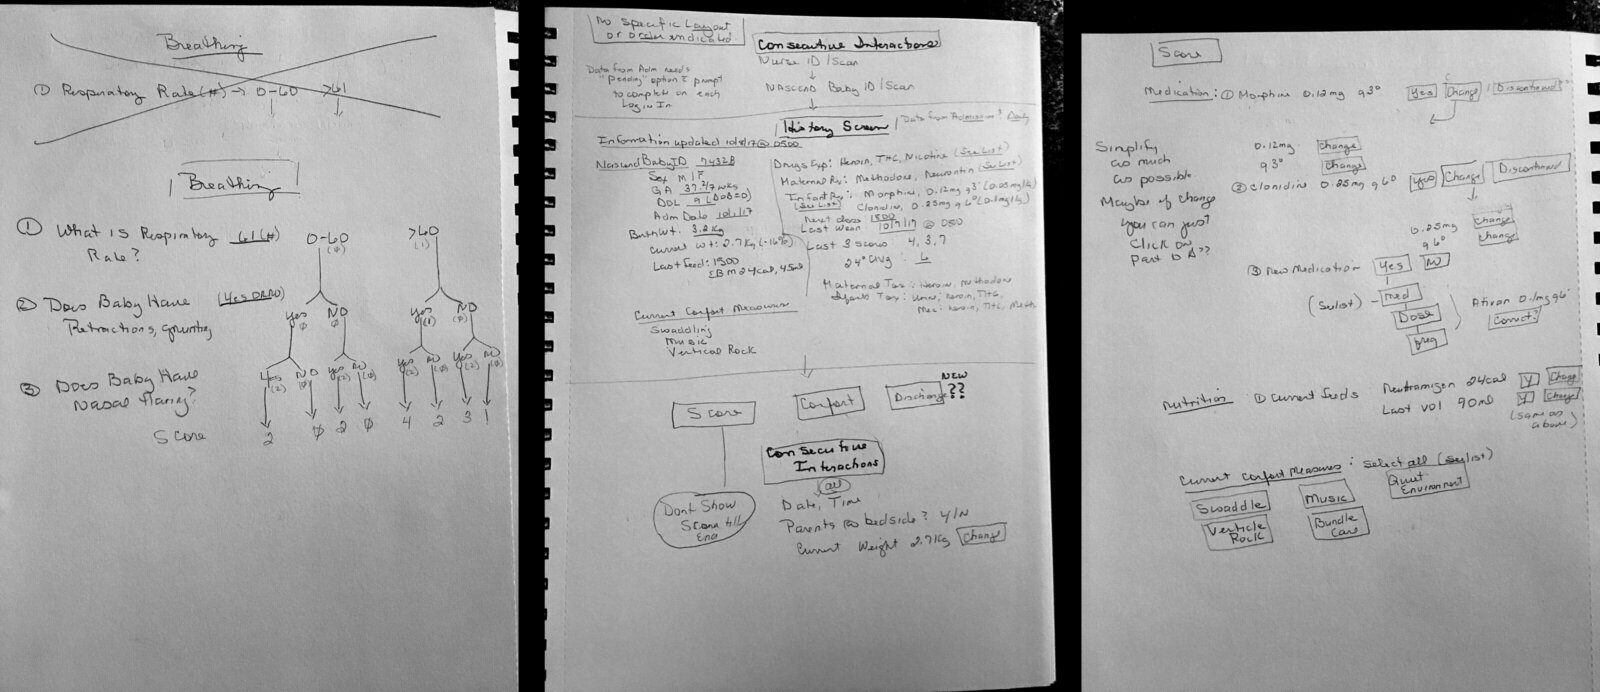 Breathing
① Respiratory Rate (#) → 0-60 >61
Breathing
① What is Respiratory 61 (#)
Rate?
0-60 >60
(0) (1)
② Does Baby Have (Yes OR NO)
Retractions, grunting
yes NO yes NO
③ Does Baby Have
Nasal Flaring?
yes NO yes NO yes NO yes NO
(2) (0) (2) (0) (2) (0) (2) (0)
Score 2 0 2 0 4 2 3 1
No Specific Layout
or order indicated
Consecutive Interactions
Nurse ID/Scan
NASCEND Baby ID/Scan
Data from Adm needs
"Pending" option & prompt
to complete on each
Log in In
History Screen
Data from Admission? Daily
Information updated 10/8/17 @ 0500
Nascend Baby ID 7432B
Sex M/F
GA 37 2/7 wks
DOL 9 (DOB=0)
Adm Date 10/1/17
Birth Wt. 3.2 kg
Current wt: 2.7 kg (-16%)
Last Feed: 1500
EBM 24cal, 45ml
Drugs Exp: Heroin, THC, Nicotine (See List)
Maternal Rx: Methadone, Neurontin (See List)
Infant Rx: Morphine, 0.12mg q3° (0.05mg/kg)
(See List) Clonidine, 0.25mg q6° (0.1mg/kg)
Next dose 1500
Last Wean 10/7/17 @ 0500
Last 3 scores 4, 3, 7
24° avg: 6
Maternal Tox: Heroin, Methadone
Infant Tox: Urine; heroin, THC,
Mec: heroin, THC, Meth.
Current Comfort Measures
Swaddling
Music
Vertical Rock
Score Comfort Discharge NEW ??
Consecutive
Interactions
all
Dont Show
Score till
End
Date, Time
Parents @ bedside? Y/N
Current Weight 2.7kg Change
Score
Medication: ① Morphine 0.12mg q3° Yes Change / Discontinued
0.12mg change
q3° change
Simplify
as much
as possible.
Maybe if change
you can just
Click on
Part to Δ??
② Clonidine 0.25mg q6° Yes Change Discontinued
0.25mg change
q6° change
③ New Medication Yes NO
(See list) - med
Dose
freq
Ativan 0.1mg q6°
Correct?
Nutrition: ① Current feeds Neutramigen 24cal Y Change
Last vol 90ml Y Change
(same as
above)
Current Comfort Measures: Select all (see list)
Swaddle Music Quiet Environment
Verticle Rock Bundle Care